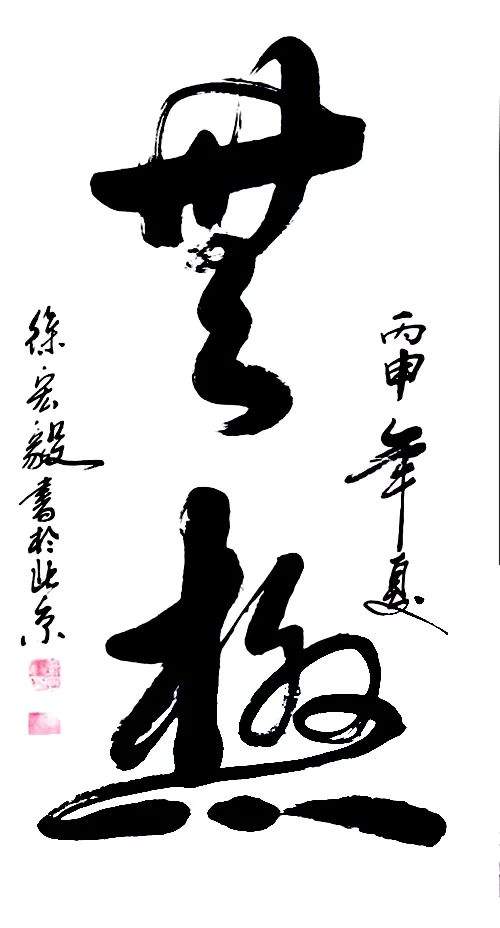 丙申年夏
無極
徐宏毅書於北京